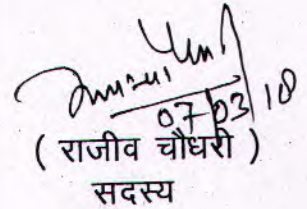 07/03/18
( राजीव चौधरी )
सदस्य